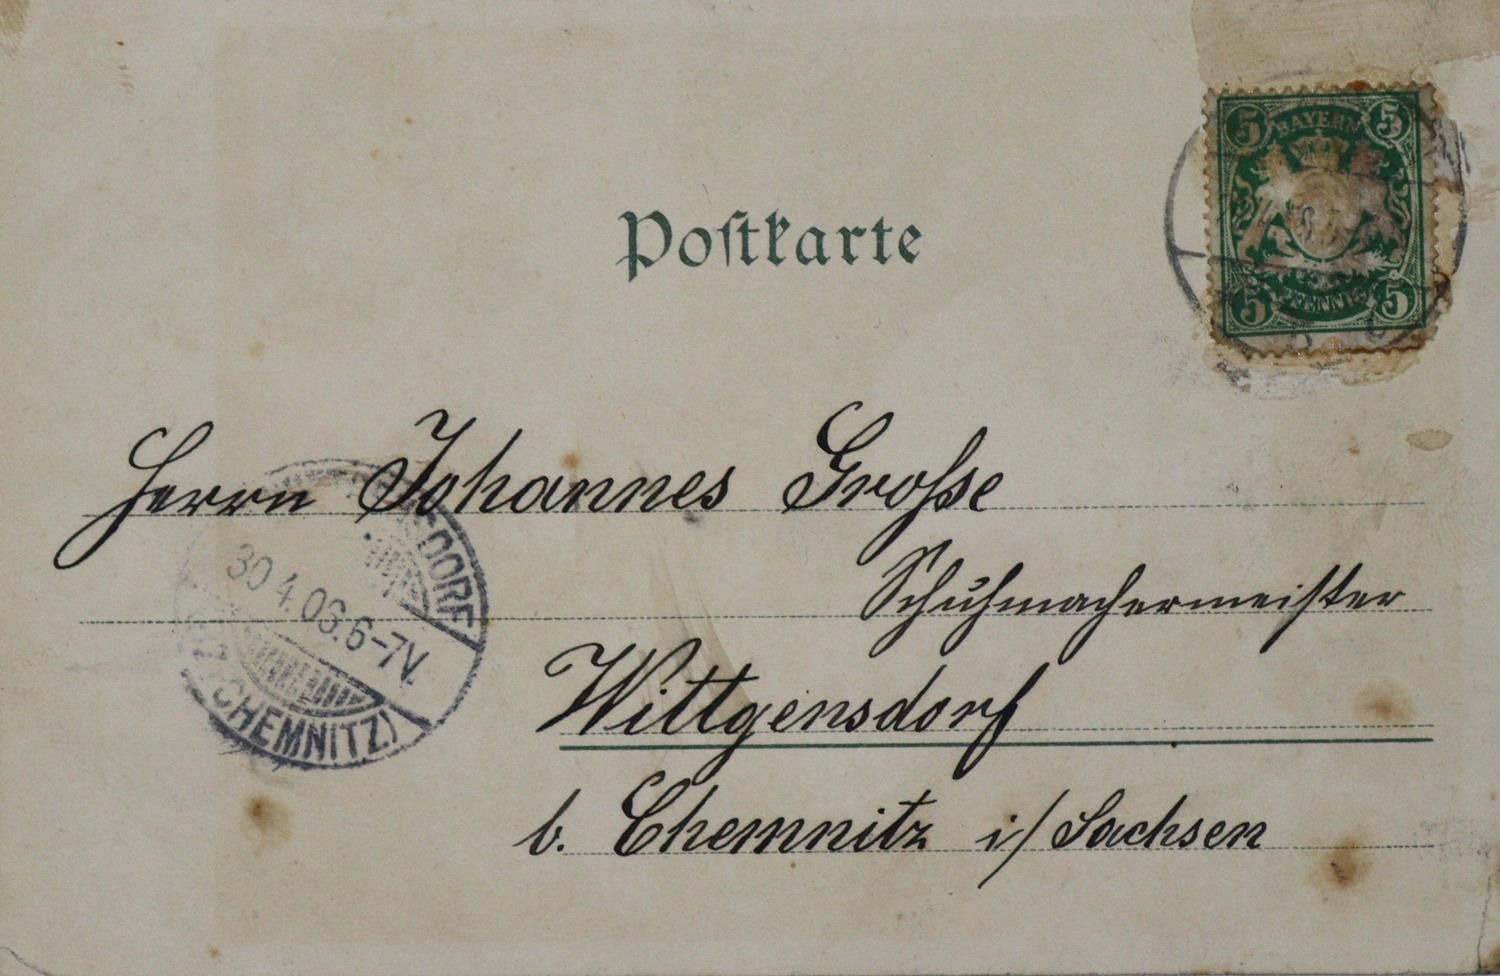 5 BAYERN 5
5 PFENNIG 5
Postkarte
Herrn Johannes Grosse
Schuhmachermeister
Wittgensdorf
b. Chemnitz i/ Sachsen
SDORF
30 4. 06. 6-7V.
CHEMNITZ)